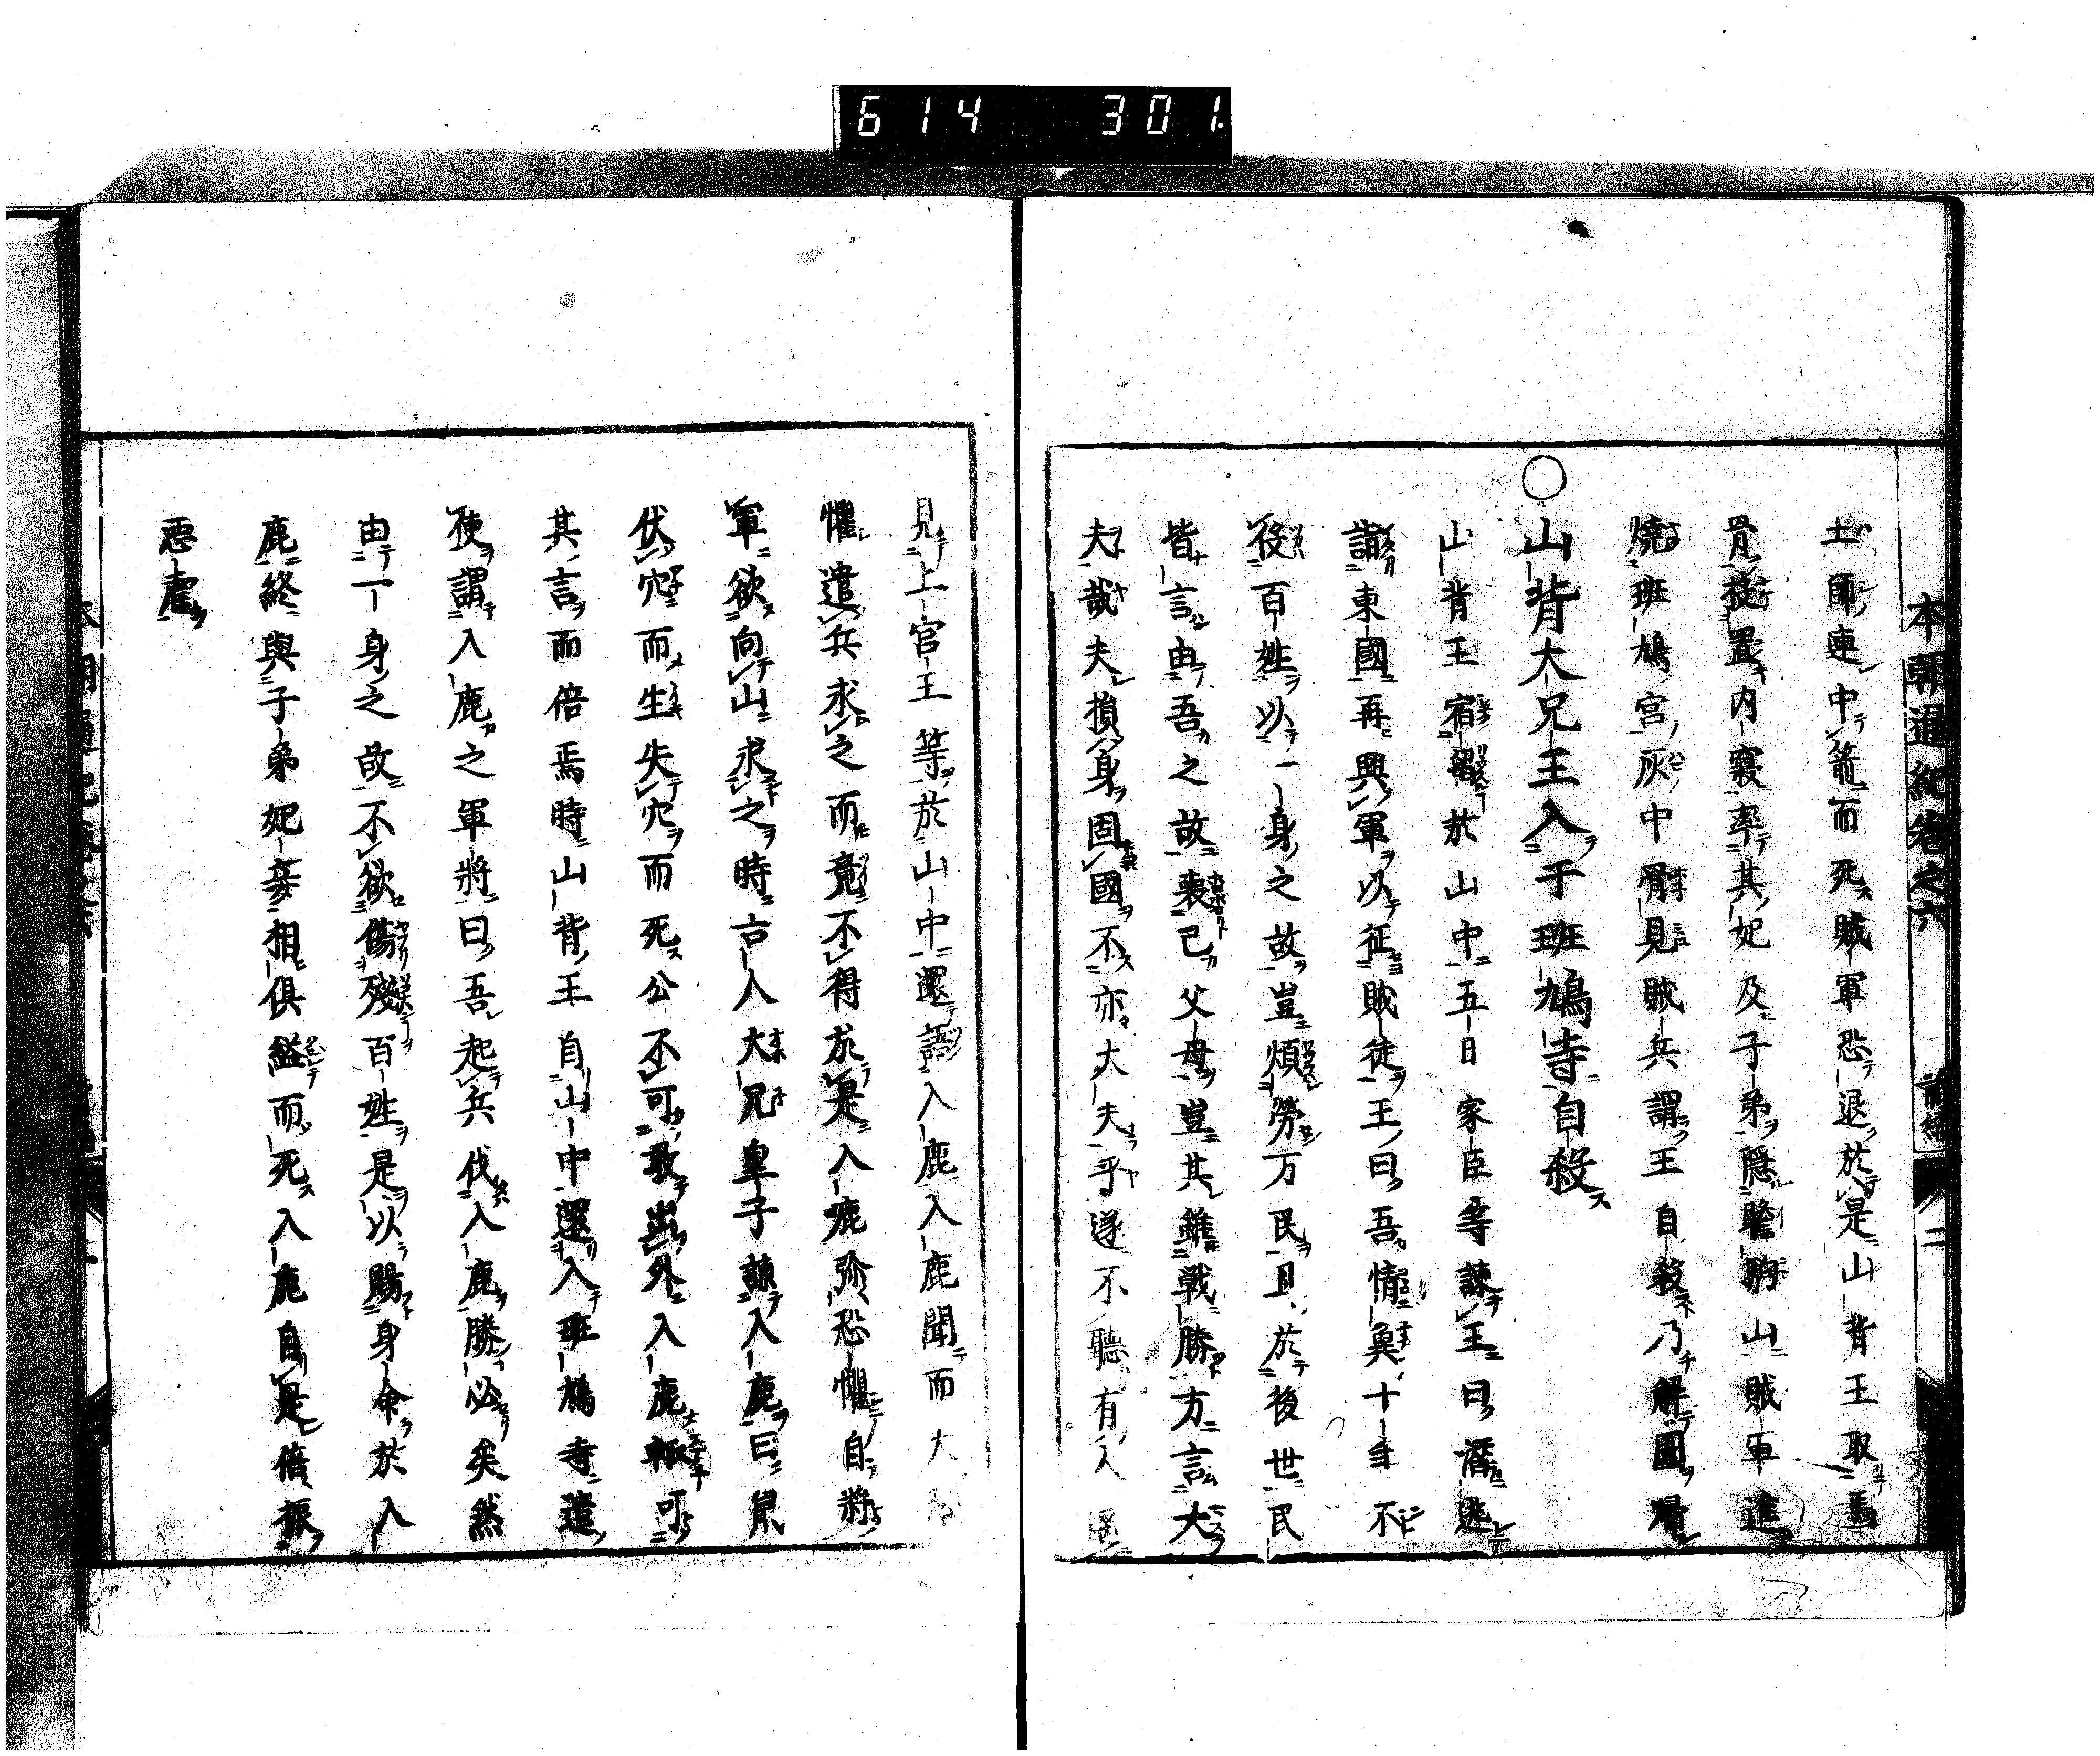 614 301.
本朝通紀卷之六 前編 二
土師連中箭而死賊軍恐退於是山背王取馬
骨投置内寢率其妃及子弟隠膽駒山賊軍進
焼班鳩宮灰中骨見賊兵謂王自殺乃解圍帰
○山背大兄王入于班鳩寺自殺
山背王宿於山中五日家臣等諫王曰潛逃
詣東國再興軍以征賊徒王曰吾情冀十年不
役百姓以一身之故豈煩勞万民且於後世民
皆言由吾之故喪己父母豈其雖戦勝方言大
夫哉夫損身固國不亦大夫乎遂不聽有人
見上宮王等於山中還語入鹿入鹿聞而大
懼遣兵求之而竟不得於是入鹿弥恐懼自將
軍欲向山求之時古人大兄皇子謂入鹿曰鼠
伏穴而生失穴而死公不可敢出外入鹿
其言而倍焉時山背王自山中還入班鳩寺遣
使謂入鹿之軍將曰吾起兵伐入鹿勝必矣然
由一身之故不欲傷殘百姓是以賜身命於入
鹿終與子弟妃妾相倶縊而死入鹿自是倍振
悪虐